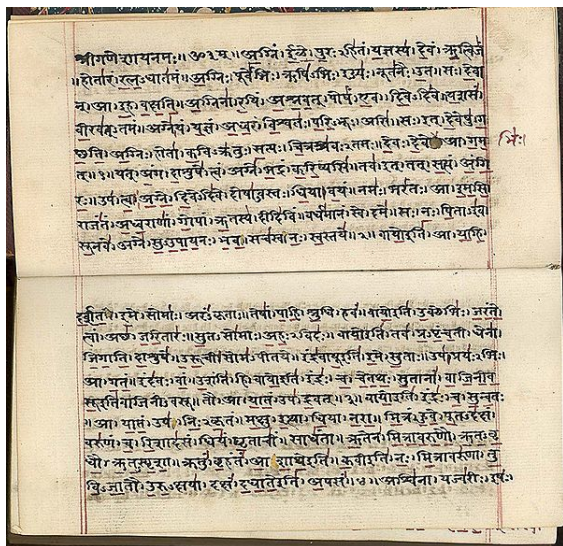 श्रीगणेशायनमः॥ॐ३म्॥अग्निं।ईळे।पुरःऽहितं।यज्ञस्य।देवं।ऋत्विजं
॥होतारं।रत्नऽधातमं॥अग्निः।पूर्वेभिः।ऋषिऽभिः।ईड्यः।नूतनैः।उत॥सः।देवा
न्।आ।इह।वक्षति॥अग्निना।रयिं।अश्नवत्।पोषं।एव।दिवेऽदिवे॥यशसं।
वीरवत्ऽतमं॥अग्ने।यं।यज्ञं।अध्वरं।विश्वतः।परिऽभूः।असि॥सः।इत्।देवेषु।ग
च्छति॥अग्निः।होता।कविऽक्रतुः।सत्यः।चित्रश्रवःऽतमः॥देवः।देवे।आ।गम
भिः।
त्॥१॥यत्।अंग।दाशुषे।त्वं।अग्ने।भद्रं।करिष्यसि॥तव।इत्।तत्।सत्यं।अंगि
रः॥उप।त्वा।अग्ने।दिवेऽदिवे।दोषाऽवस्तः।धिया।वयं॥नमः।भरंतः।आ।इमसि॥
राजंतं।अध्वराणां।गोपां।ऋतस्य।दीदिविं॥वर्धमानं।स्वे।दमे॥सः।नः।पिताऽइव।
सूनवे।अग्ने।सुऽउपायनः।भव॥सचस्व।नः।स्वस्तये॥२॥वायोइति।आ।याहि।
दर्शत।इमे।सोमाः।अरंऽकृताः॥तेषां।पाहि।श्रुधि।हवं॥वायोइति।उक्थेभिः।जरंते।
त्वां।अच्छ।जरितारः॥सुतऽसोमाः।अहःऽविदः॥वायोइति।तव।प्रऽपृंचती।धेना।
जिगाति।दाशुषे॥उरूची।सोमऽपीतये॥इंद्रवायूइति।इमे।सुताः॥उप।प्रयःऽभिः॥
आ।गतं॥इंदवः।वां।उशंति।हि॥वायोइति।इंद्रः।च।चेतथः।सुतानां।वाजिनीव
सूइतिवाजिनीऽवसू॥तौ।आ।यातं।उप।द्रवत्॥३॥वायोइति।इंद्रः।च।सुन्वतः
॥आ।यातं।उप।निःऽकृतं॥मक्षु।इत्था।धिया।नरा॥मित्रं।हुवे।पूतऽदक्षं।
वरुणं।च।रिशादसं॥धियं।घृताचीं।साधंता॥ऋतेन।मित्रावरुणौ।ऋतऽवृ
धौ।ऋतऽस्पृशा॥क्रतुं।बृहंतं।आशाथेइति॥कवीइति।नः।मित्रावरुणा।तु
विऽजातौ।उरुऽक्षया॥दक्षं।दधातेइति।अपसं॥४॥अश्विना।यज्वरीः।इषः।